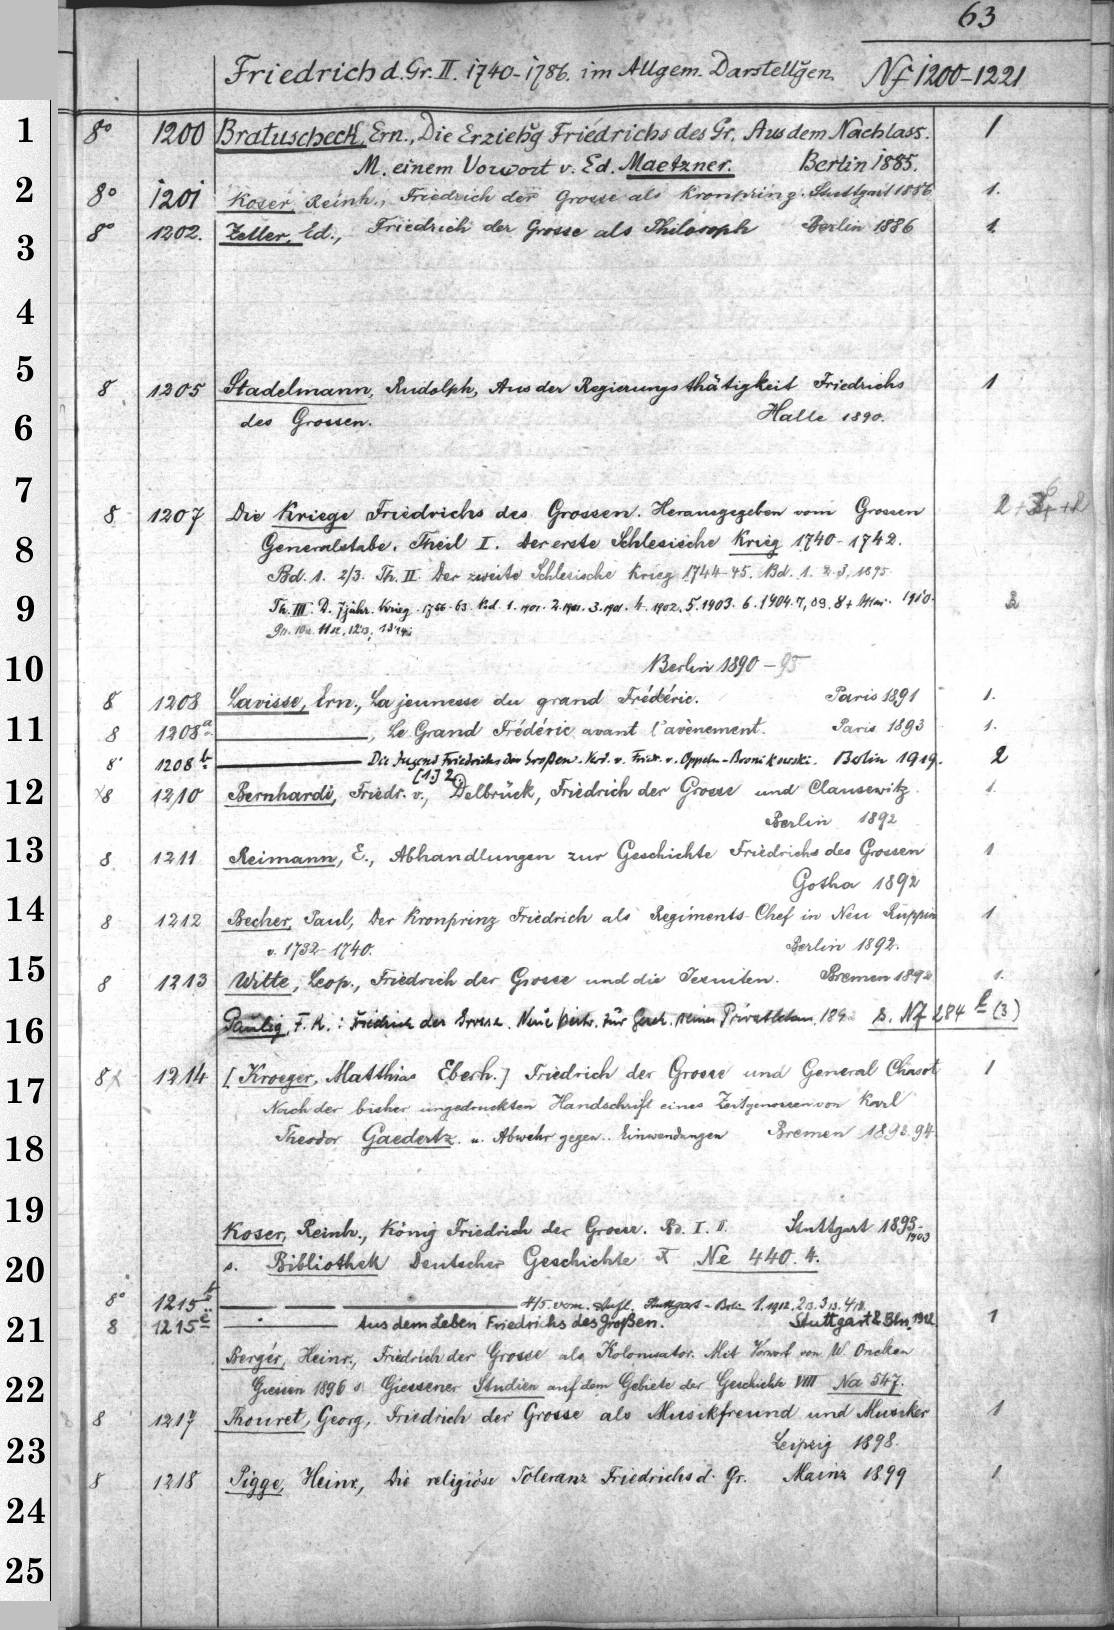 63
Friedrich d. Gr. II. 1740-1786. im Allgem. Darstellgen. Nf 1200-1221
1 8° 1200 Bratuscheck, Ern., Die Erziehg Friedrichs des Gr. Aus dem Nachlass. 1
M. einem Vorwort v. Ed. Maetzner. Berlin 1885.
2 8° 1201 Koser, Reinh., Friedrich der Grosse als Kronprinz. Stuttgart 1886 1.
3 8° 1202. Zeller, Ed., Friedrich der Grosse als Philosoph Berlin 1886 1.
4
5 8 1205 Stadelmann, Rudolph, Aus der Regierungsthätigkeit Friedrichs 1
6 des Grossen. Halle 1890.
7 8 1207 Die Kriege Friedrichs des Grossen. Herausgegeben vom Grossen
8 Generalstabe. Theil I. Der erste Schlesische Krieg 1740-1742.
Bd. 1. 2/3. Th. II. Der zweite Schlesische Krieg 1744-45. Bd. 1. 2. 3. 1895
9 Th. III. D. 7jähr. Krieg. 1756-63. Bd. 1. 1901. 2. 1901. 3. 1901. 4. 1902. 5. 1903. 6. 1904. 7, 09. 8 + Atlas. 1910.
10 Berlin 1890-95
8 1208 Lavisse, Ern., La jeunesse du grand Frédéric. Paris 1891 1.
11 8 1208a ———, Le Grand Frédéric avant l'avènement. Paris 1893 1.
8 1208b ——— Die Jugend Friedrichs des Großen. Verd. v. Friedr. v. Oppeln-Bronikowski. Berlin 1919. 2
[1.] 2.
12 8 1210 Bernhardi, Friedr. v., Delbrück, Friedrich der Grosse und Clausewitz. 1.
Berlin 1892
13 8 1211 Reimann, E., Abhandlungen zur Geschichte Friedrichs des Grossen 1
Gotha 1892
14 8 1212 Becher, Paul, Der Kronprinz Friedrich als Regiments-Chef in Neu Ruppin 1
v. 1732-1740. Berlin 1892.
15 8 1213 Witte, Leop., Friedrich der Grosse und die Jesuiten. Bremen 1892 1.
16 Paulig, F. R.: Friedrich der Grosse. Neue Beitr. zur Gesch. seines Privatlebens, 1892 s. Nf 284 (3)
17 8 1214 [Kroeger, Matthias Eberh.] Friedrich der Grosse und General Chasot 1
Nach der bisher ungedruckten Handschrift eines Zeitgenossen von Karl
18 Theodor Gaedertz. u. Abwehr gegen .. Einwendungen Bremen 1893. 94
19 Koser, Reinh., König Friedrich der Grosse. Bd. I. II. Stuttgart 1893-1903
20 s. Bibliothek Deutscher Geschichte Ne 440. 4.
8° 1215b ——— 4/5. verm. Aufl. Stuttgart-Berlin 1. 1912. 2. 13. 3. 13. 4. 14.
21 8 1215c ——— Aus dem Leben Friedrichs des Großen. Stuttgart & Bln. 1912 1
Berger, Heinr., Friedrich der Grosse als Kolonisator. Mit Vorwort von W. Oncken
22 Giessen 1896 s. Giessener Studien auf dem Gebiete der Geschichte VIII Na 547.
8 1217 Thouret, Georg, Friedrich der Grosse als Musikfreund und Musiker 1
23 Leipzig 1898.
8 1218 Pigge, Heinr., Die religiöse Toleranz Friedrichs d. Gr. Mainz 1899 1
24
25